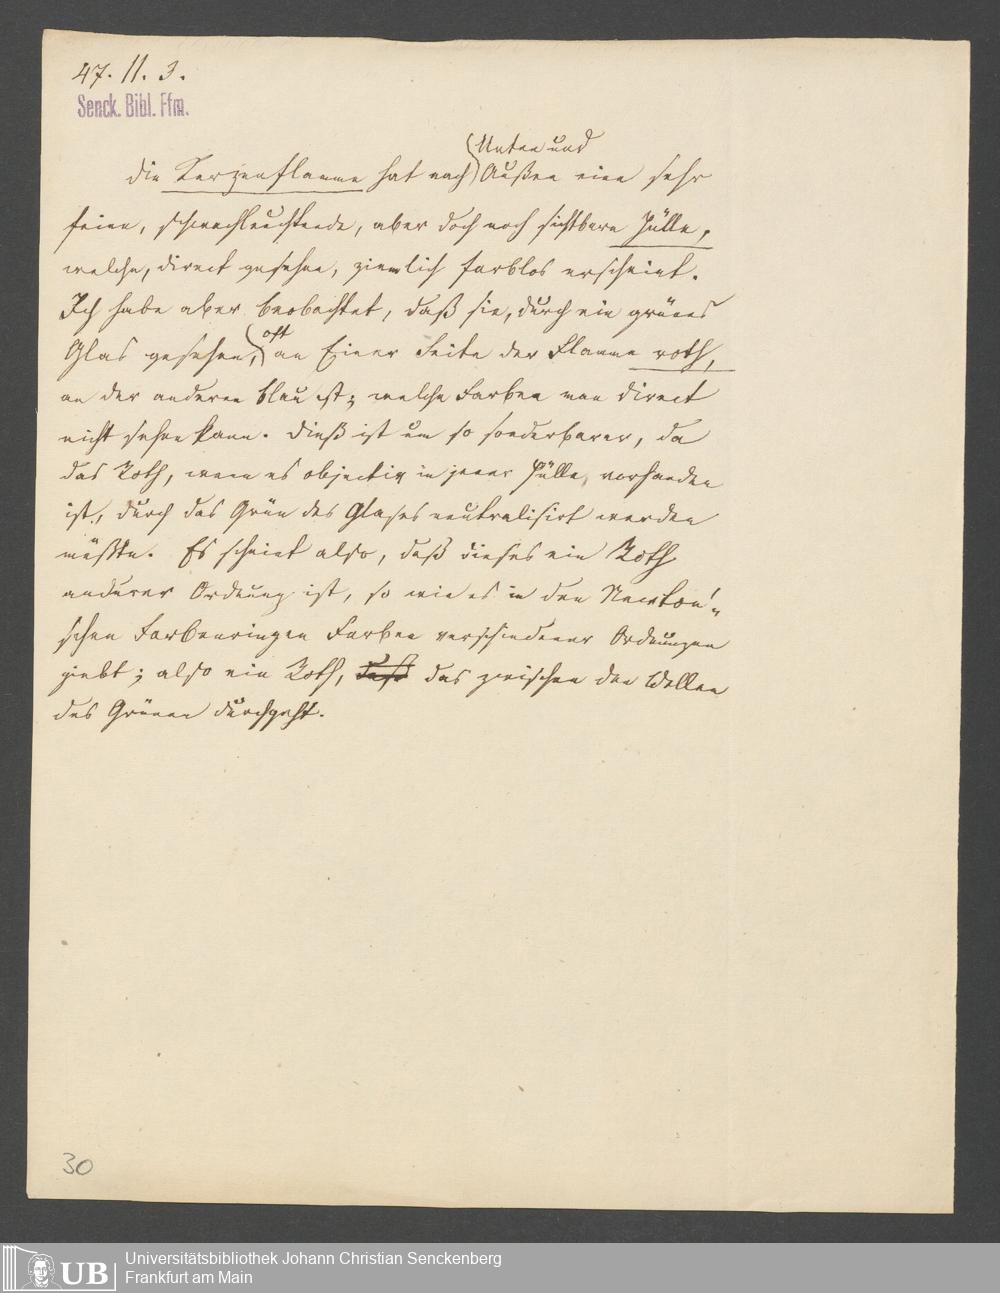 47. 11. 3.
Senck. Bibl. Ffm.
Unten und
die Kerzenflamme hat nach Außen eine sehr
feine, schwachleuchtende, aber doch noch sichtbare Hülle,
welche, direct gesehen, ziemlich farblos erscheint.
Ich habe aber beobachtet, daß sie, durch ein grünes
oft
Glas gesehen, an Einer Seite der Flamme roth,
an der anderen blau ist; welche Farben man direct
nicht sehen kann. Dieß ist um so sonderbarer, da
das Roth, wenn es objectiv in jener Hülle, vorhanden
ist, durch das Grün des Glases neutralisirt werden
müßte. Es scheint also, daß dieses ein Roth
anderer Ordnung ist, so wie es in den Newton'-
schen Farbenringen Farben verschiedener Ordnungen
giebt; also ein Roth, daß das zwischen den Wellen
des Grünen durchgeht.
30
UB
Universitätsbibliothek Johann Christian Senckenberg
Frankfurt am Main